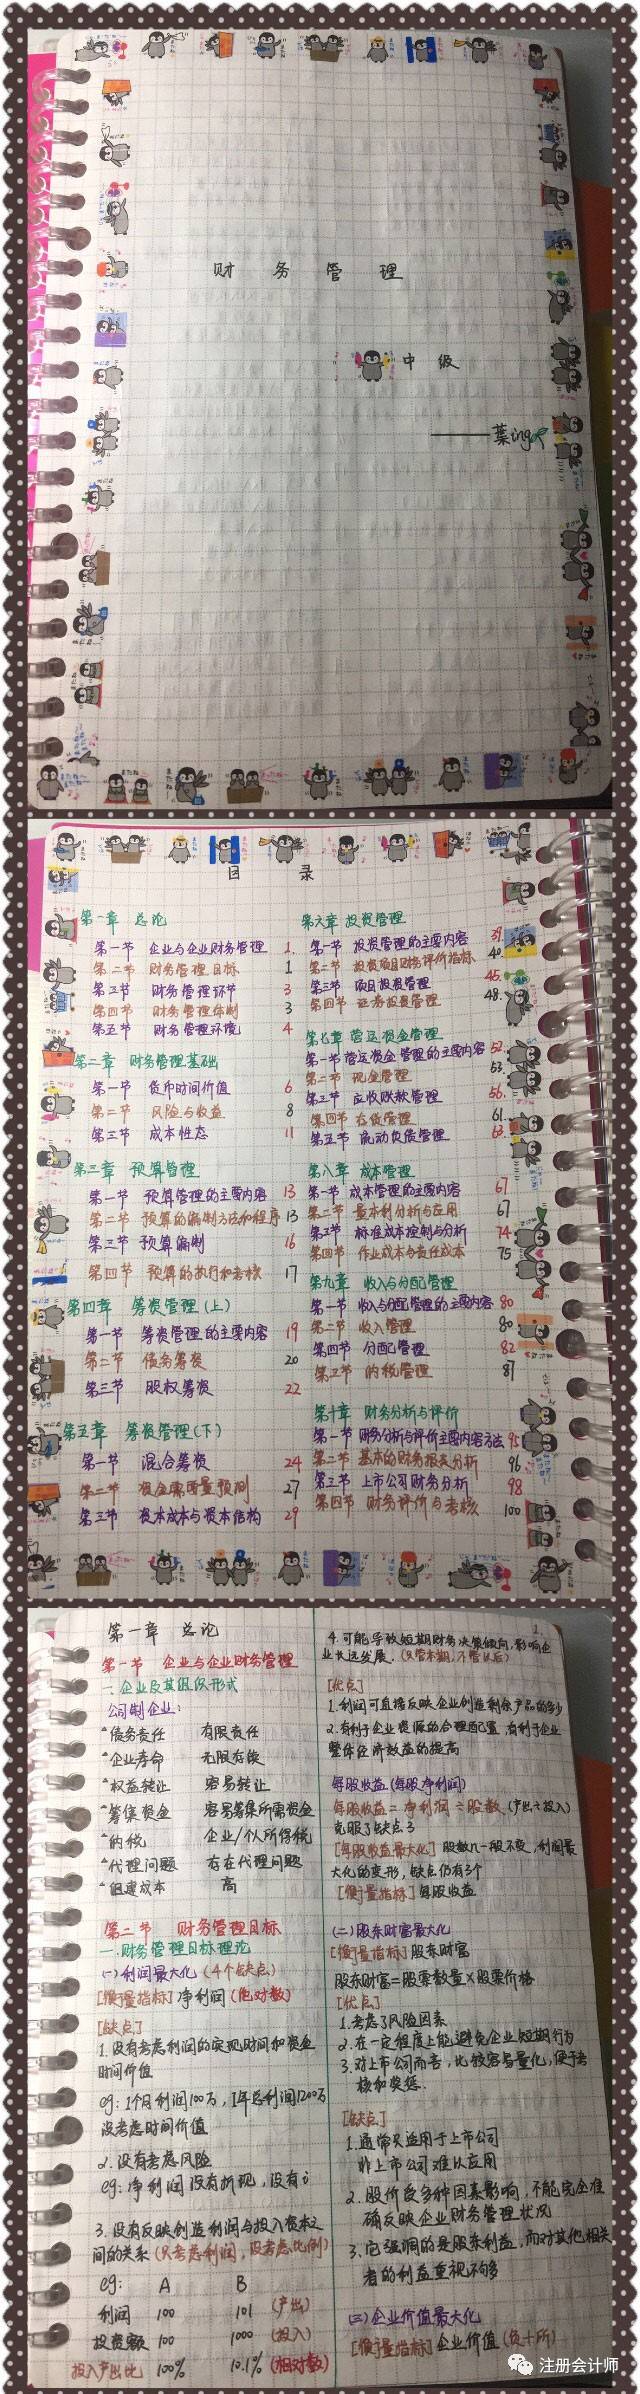 财 务 管 理
中 级
——葉ing
目 录
第一章 总论
第一节 企业与企业财务管理 1.
第二节 财务管理目标 1
第三节 财务管理环节 3
第四节 财务管理体制 3
第五节 财务管理环境 4
第二章 财务管理基础
第一节 货币时间价值 6
第二节 风险与收益 8
第三节 成本性态 11
第三章 预算管理
第一节 预算管理的主要内容 13
第二节 预算的编制方法和程序 13
第三节 预算编制 16
第四节 预算的执行和考核 17
第四章 筹资管理(上)
第一节 筹资管理的主要内容 19
第二节 债务筹资 20
第三节 股权筹资 22
第五章 筹资管理(下)
第一节 混合筹资 24
第二节 资金需要量预测 27
第三节 资本成本与资本结构 29
第六章 投资管理
第一节 投资管理的主要内容 39.
第二节 投资项目财务评价指标 40.
第三节 项目投资管理 45.
第四节 证券投资管理 48.
第七章 营运资金管理
第一节 营运资金管理的主要内容 52.
第二节 现金管理 53.
第三节 应收账款管理 56.
第四节 存货管理 61.
第五节 流动负债管理 63.
第八章 成本管理
第一节 成本管理的主要内容 67
第二节 量本利分析与应用 67
第三节 标准成本控制与分析 74
第四节 作业成本与责任成本 75
第九章 收入与分配管理
第一节 收入与分配管理的主要内容 80
第二节 收入管理 80
第四节 分配管理 82
第三节 纳税管理 87
第十章 财务分析与评价
第一节 财务分析与评价主要内容方法 95
第二节 基本的财务报表分析 96
第三节 上市公司财务分析 98
第四节 财务评价与考核 100
第一章 总论
第一节 企业与企业财务管理
一.企业及其组织形式
公司制企业:
债务责任 有限责任
企业寿命 无限存续
权益转让 容易转让
筹集资金 容易筹集所需资金
纳税 企业/个人所得税
代理问题 存在代理问题
组建成本 高
第二节 财务管理目标
一.财务管理目标理论
(一)利润最大化 (4个缺点)
[衡量指标]净利润(绝对数)
[缺点]
1.没有考虑利润的实现时间和资金
时间价值
eg:1个月利润100万,1年总利润1200万
没考虑时间价值
2.没有考虑风险
eg:净利润没有折现,没有i
3.没有反映创造利润与投入资本之
间的关系(只考虑利润,没考虑比例)
eg: A B
利润 100 101 (产出)
投资额 100 1000 (投入)
投入产出比 100% 10.1% (相对数)
1.
4.可能导致短期财务决策倾向,影响企
业长远发展.(只管本期,不管以后)
[优点]
1.利润可直接反映企业创造剩余产品的多少
2.有利于企业资源的合理配置,有利于企业
整体经济效益的提高
每股收益(每股净利润)
每股收益=净利润÷股数(产出÷投入)
克服了缺点3
[每股收益最大化]股数n一般不变,利润最
大化的变形,缺点仍有3个
[衡量指标]每股收益
(二)股东财富最大化
[衡量指标]股东财富
股东财富=股票数量×股票价格
[优点]
1.考虑了风险因素
2.在一定程度上能避免企业短期行为
3.对上市公司而言,比较容易量化,便于考
核和奖惩.
[缺点]
1.通常只适用于上市公司
非上市公司难以应用
2.股价受多种因素影响,不能完全准
确反映企业财务管理状况
3.它强调的是股东利益,而对其他相关
者的利益重视不够
(三)企业价值最大化
[衡量指标]企业价值(负+所)
注册会计师